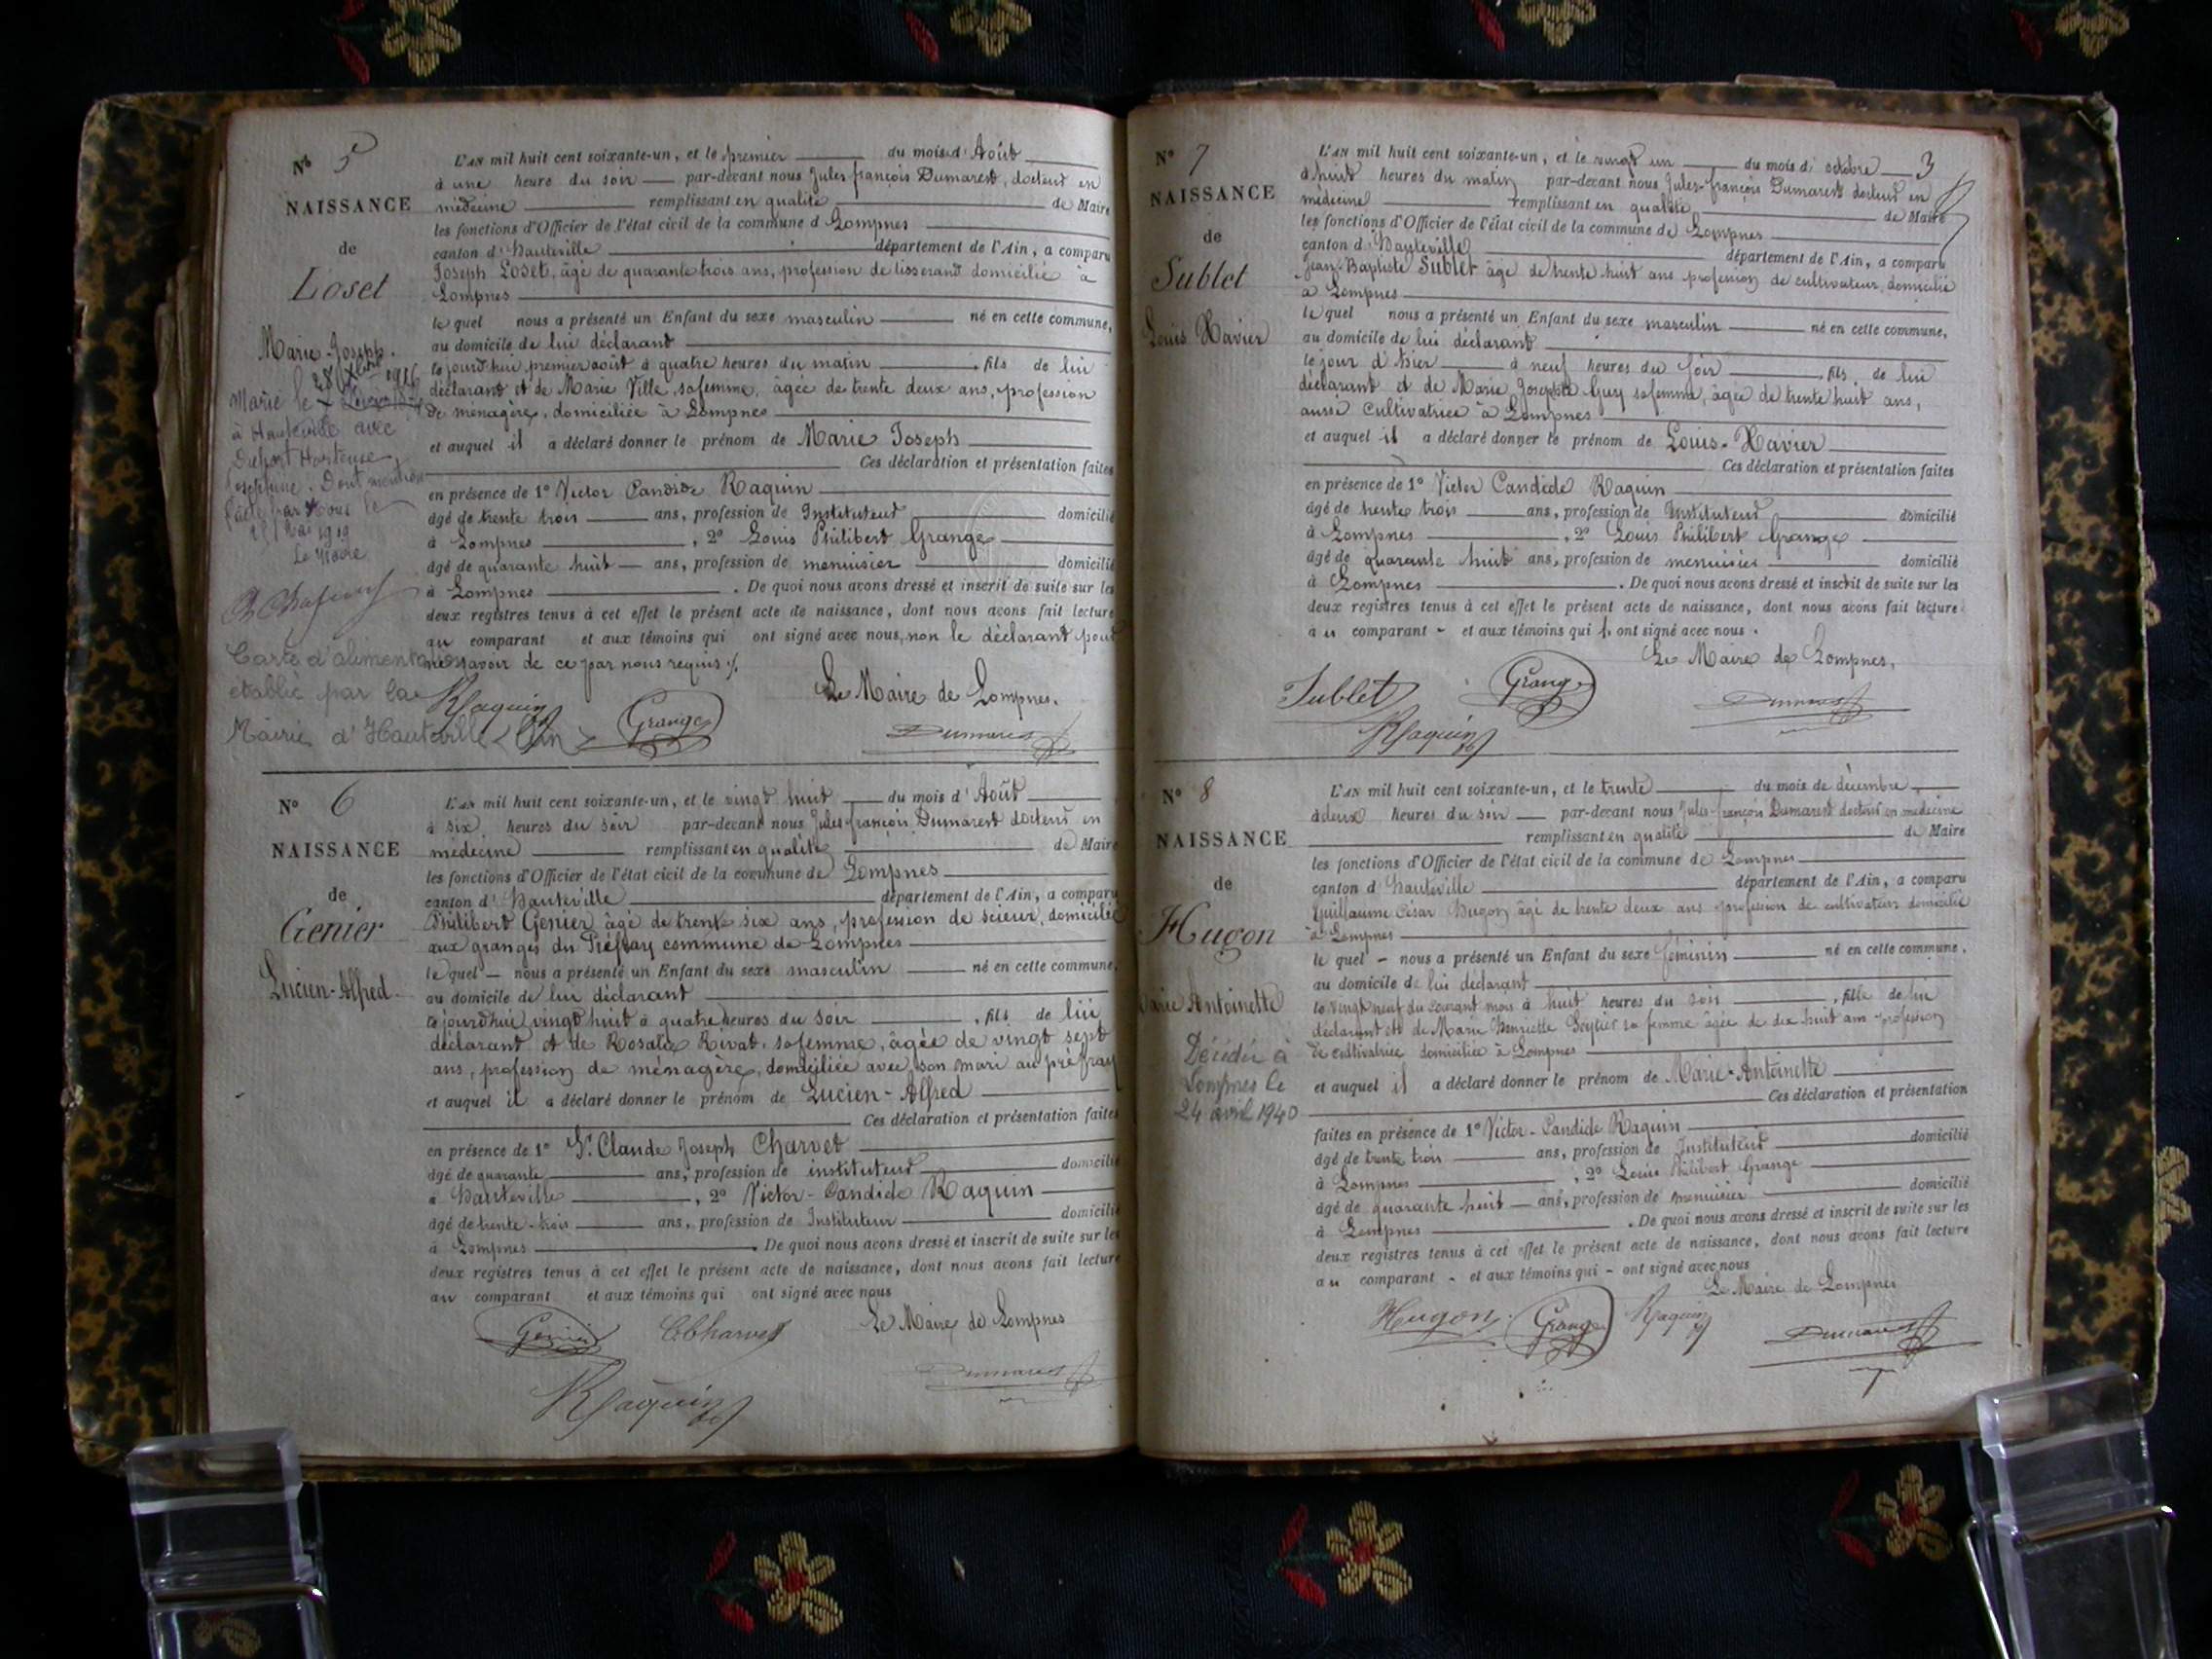 N° 5
NAISSANCE
de
Loset
Marie-Joseph.
Marié le
à Hauteville avec
Duport Hortense
Joséphine. Dont mention
faite par Nous le
Mai 1919
Le Maire
Carte d'alimentation
établie par la
Mairie d'Hauteville (Ain)
L'AN mil huit cent soixante-un, et le premier du mois d'Août
à une heure du soir par-devant nous Jules françois Dumarest, docteur en
médecine remplissant en qualité de Maire
les fonctions d'Officier de l'état civil de la commune d Lompnes
canton d'Hauteville département de l'Ain, a comparu
Joseph Loset, âgé de quarante trois ans, profession de tisserand domicilié à
Lompnes
le quel nous a présenté un Enfant du sexe masculin né en cette commune,
au domicile de lui déclarant
le jourd'hui premier août à quatre heures du matin, fils de lui
déclarant et de Marie Ville, sa femme, âgée de trente deux ans, profession
de ménagère, domiciliée à Lompnes
et auquel il a déclaré donner le prénom de Marie Joseph
Ces déclaration et présentation faites
en présence de 1° Victor Candide Raquin
âgé de trente trois ans, profession de Instituteur domicilié
à Lompnes, 2° Louis Philibert Grange
âgé de quarante huit ans, profession de menuisier domicilié
à Lompnes. De quoi nous avons dressé et inscrit de suite sur les
deux registres tenus à cet effet le présent acte de naissance, dont nous avons fait lecture
au comparant et aux témoins qui ont signé avec nous, non le déclarant pour
ne savoir de ce par nous requis ./.
Le Maire de Lompnes.
Raquin Grange Dumarest
N° 6
NAISSANCE
de
Genier
Lucien-Alfred.
L'AN mil huit cent soixante-un, et le vingt huit du mois d'Août
à six heures du soir par-devant nous Jules françois Dumarest docteur en
médecine remplissant en qualité de Maire
les fonctions d'Officier de l'état civil de la commune de Lompnes
canton d'Hauteville département de l'Ain, a comparu
Philibert Genier âgé de trente six ans, profession de scieur, domicilié
aux granges du Préfray commune de Lompnes
le quel nous a présenté un Enfant du sexe masculin né en cette commune,
au domicile de lui déclarant
le jourd'hui vingt huit à quatre heures du soir, fils de lui
déclarant et de Rosalie Rivat, sa femme, âgée de vingt sept
ans, profession de ménagère, domiciliée avec son mari au préfray
et auquel il a déclaré donner le prénom de Lucien-Alfred
Ces déclaration et présentation faites
en présence de 1° Sr. Claude Joseph Charvet
âgé de quarante ans, profession de instituteur domicilié
à Hauteville, 2° Victor-Candide Raquin
âgé de trente-trois ans, profession de Instituteur domicilié
à Lompnes. De quoi nous avons dressé et inscrit de suite sur les
deux registres tenus à cet effet le présent acte de naissance, dont nous avons fait lecture
au comparant et aux témoins qui ont signé avec nous
Le Maire de Lompnes
Genier Charvet Dumarest
Raquin
3
N° 7
NAISSANCE
de
Sublet
Louis Xavier
L'AN mil huit cent soixante-un, et le vingt un du mois d' octobre
à huit heures du matin par-devant nous Jules-françois Dumarest docteur en
médecine remplissant en qualité de Maire
les fonctions d'Officier de l'état civil de la commune de Lompnes
canton d'Hauteville département de l'Ain, a comparu
Jean-Baptiste Sublet âgé de trente huit ans profession de cultivateur, domicilié
à Lompnes
le quel nous a présenté un Enfant du sexe masculin né en cette commune,
au domicile de lui déclarant
le jour d'hier à neuf heures du soir, fils de lui
déclarant et de Marie Josephte Guy sa femme, âgée de trente huit ans,
aussi cultivatrice à Lompnes
et auquel il a déclaré donner le prénom de Louis-Xavier
Ces déclaration et présentation faites
en présence de 1° Victor Candide Raquin
âgé de trente trois ans, profession de Instituteur domicilié
à Lompnes, 2° Louis Philibert Grange
âgé de quarante huit ans, profession de menuisier domicilié
à Lompnes. De quoi nous avons dressé et inscrit de suite sur les
deux registres tenus à cet effet le présent acte de naissance, dont nous avons fait lecture
au comparant - et aux témoins qui ont signé avec nous.
Le Maire de Lompnes,
Sublet Grange Dumarest
Raquin
N° 8
NAISSANCE
de
Hugon
Marie Antoinette
Décédée à
Lompnes le
24 avril 1940
L'AN mil huit cent soixante-un, et le trente du mois de décembre
à deux heures du soir par-devant nous Jules-françois Dumarest docteur en médecine
remplissant en qualité de Maire
les fonctions d'Officier de l'état civil de la commune de Lompnes
canton d Hauteville département de l'Ain, a comparu
Guillaume César Hugon âgé de trente deux ans profession de cultivateur domicilié
à Lompnes
le quel - nous a présenté un Enfant du sexe féminin né en cette commune,
au domicile de lui déclarant
le vingt neuf du courant mois à huit heures du soir, fille de lui
déclarant et de Marie Henriette sa femme âgée de dix huit ans profession
de cultivatrice domiciliée à Lompnes
et auquel il a déclaré donner le prénom de Marie-Antoinette
Ces déclaration et présentation
faites en présence de 1° Victor-Candide Raquin
âgé de trente trois ans, profession de Instituteur domicilié
à Lompnes, 2° Louis Philibert Grange
âgé de quarante huit ans, profession de menuisier domicilié
à Lompnes. De quoi nous avons dressé et inscrit de suite sur les
deux registres tenus à cet effet le présent acte de naissance, dont nous avons fait lecture
au comparant - et aux témoins qui - ont signé avec nous
Le Maire de Lompnes
Hugon Grange Raquin Dumarest